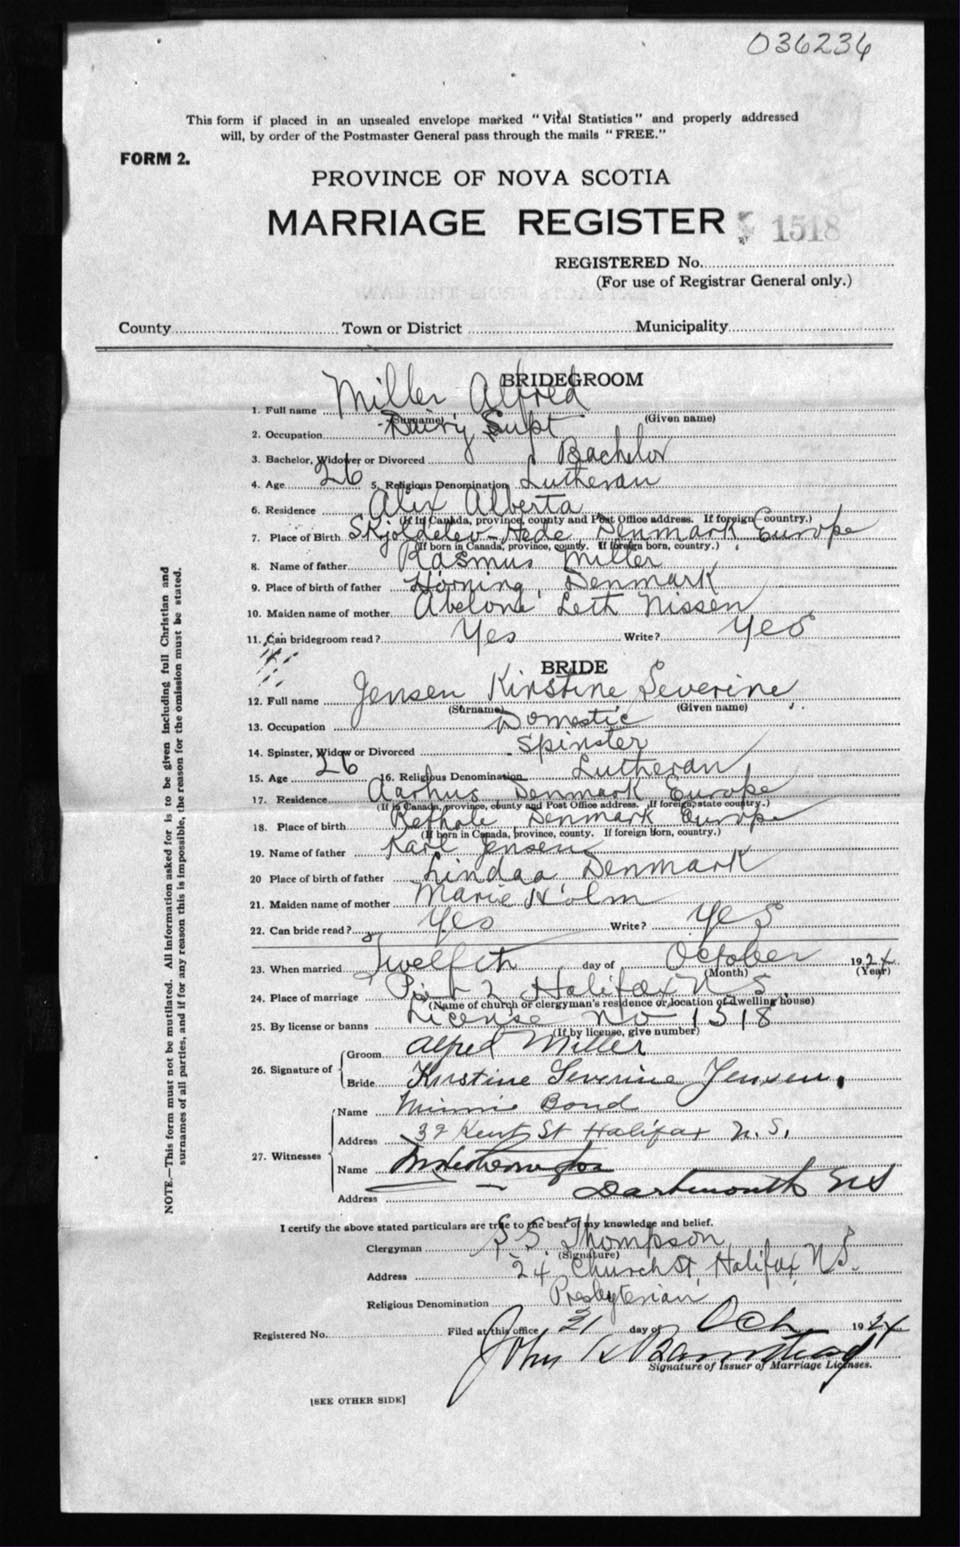 036236
This form if placed in an unsealed envelope marked "Vital Statistics" and properly addressed
will, by order of the Postmaster General pass through the mails "FREE."
FORM 2.
PROVINCE OF NOVA SCOTIA
MARRIAGE REGISTER 1518
REGISTERED No.
(For use of Registrar General only.)
County Town or District Municipality
BRIDEGROOM
1. Full name Miller Alfred
(Surname) (Given name)
2. Occupation Dairy Supt
3. Bachelor, Widower or Divorced Bachelor
4. Age 26 5. Religious Denomination Lutheran
6. Residence Alix Alberta
(If in Canada, province, county and Post Office address. If foreign country.)
7. Place of Birth Skjoldelev-Hede Denmark Europe
(If born in Canada, province, county. If foreign born, country.)
8. Name of father Rasmus Miller
9. Place of birth of father Hörning, Denmark
10. Maiden name of mother Abelone Leth Nissen
11. Can bridegroom read? Yes Write? Yes
BRIDE
12. Full name Jensen Kirstine Severine
(Surname) (Given name)
13. Occupation Domestic
14. Spinster, Widow or Divorced Spinster
15. Age 26 16. Religious Denomination Lutheran
17. Residence Aarhus Denmark Europe
(If in Canada, province, county and Post Office address. If foreign, state country.)
18. Place of birth Refhale Denmark Europe
(If born in Canada, province, county. If foreign born, country.)
19. Name of father Karl Jensen
20 Place of birth of father Lindaa Denmark
21. Maiden name of mother Marie Holm
22. Can bride read? Yes Write? Yes
23. When married Twelfth day of October 1924
(Month) (Year)
24. Place of marriage Pier 2 Halifax N.S.
(Name of church or clergyman's residence or location of dwelling house)
25. By license or banns License No 1518
(If by license, give number)
26. Signature of Groom Alfred Miller
Bride Kirstine Severine Jensen.
27. Witnesses Name Minnie Bond
Address 39 Kent St Halifax N.S.
Name
Address Dartmouth NS
I certify the above stated particulars are true to the best of my knowledge and belief.
Clergyman S S Thompson
(Signature)
Address 24 Church St, Halifax, N.S.
Religious Denomination Presbyterian
Registered No. Filed at this office 21 day of Oct 1924
John R Barnstead
Signature of Issuer of Marriage Licenses.
[SEE OTHER SIDE]
NOTE.—This form must not be mutilated. All information asked for is to be given including full Christian and
surnames of all parties, and if for any reason this is impossible, the reason for the omission must be stated.